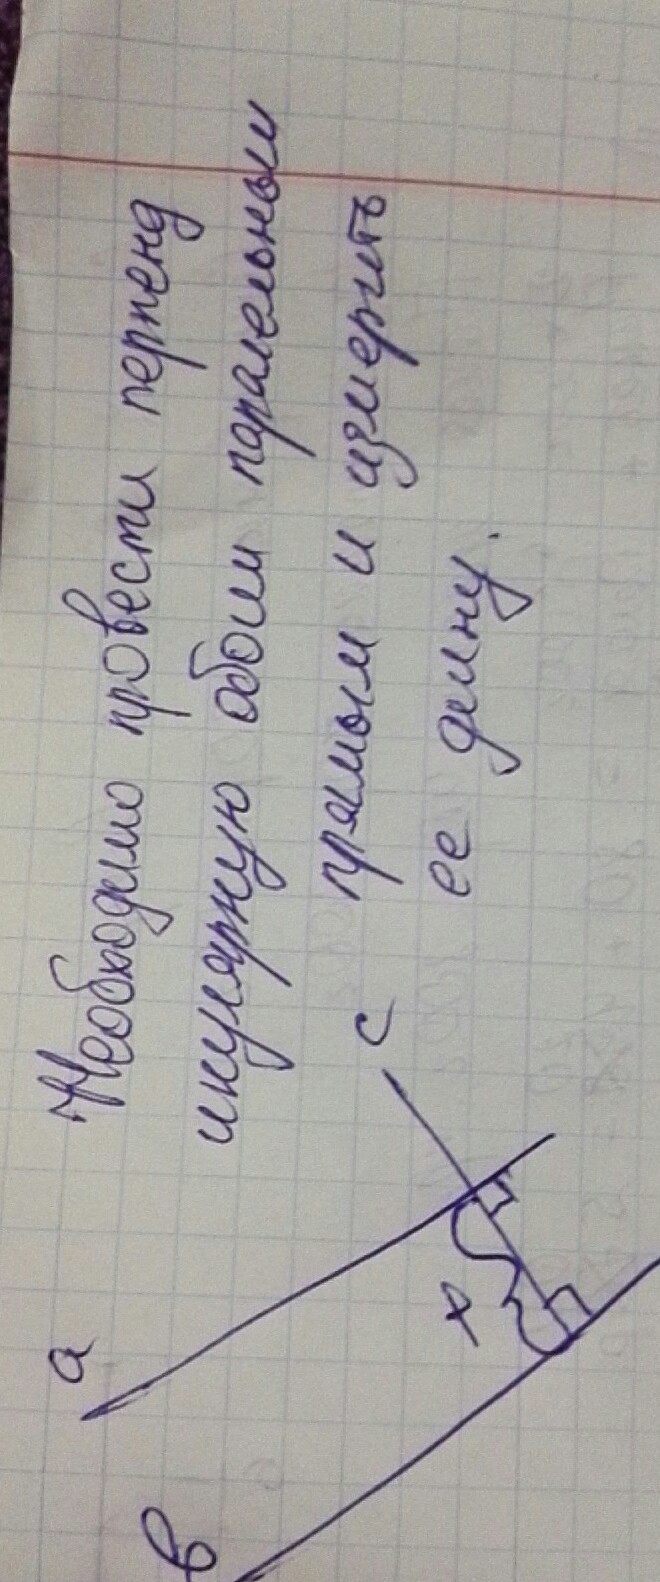 Необходимо провести перпенд
икулярную обоим паралельным
прямым и измерить
ее длину.
a
c
x
в